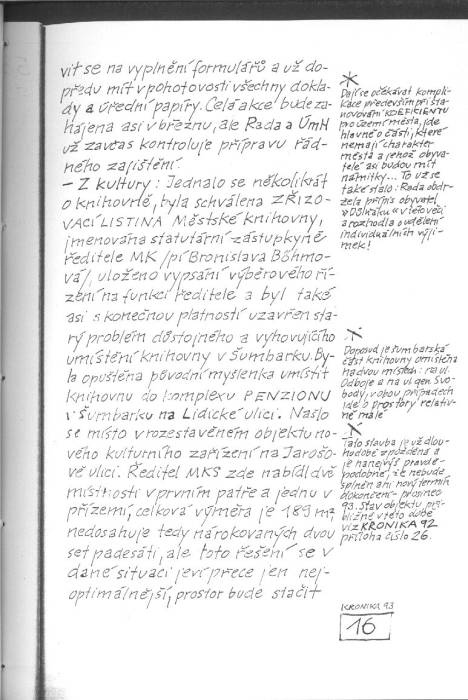 vit se na vyplnění formulářů a už do-
předu mít v pohotovosti všechny dokla-
dy a úřední papíry. Celá akce bude za-
hájena asi v březnu, ale Rada a ÚmH
už zavčas kontroluje přípravu řád-
ného zajištění.
– Z kultury: Jednalo se několikrát
o knihovně, byla schválena ZŘIZO-
VACÍ LISTINA Městské knihovny,
jmenována statutární zástupkyně
ředitele MK /pí Bronislava Böhmo-
vá/, uloženo vypsání výběrového ří-
zení na funkci ředitele a byl také
asi s konečnou platností uzavřen sta-
rý problém důstojného a vyhovujícího
umístění knihovny v Šumbarku. By-
la opuštěna původní myšlenka umístit
knihovnu do komplexu PENZIONU
v Šumbarku na Lidické ulici. Našlo
se místo v rozestavěném objektu no-
vého kulturního zařízení na Jarošo-
vě ulici. Ředitel MKS zde nabídl dvě
místnosti v prvním patře a jednu v
přízemí, celková výměra je 189 m²,
nedosahuje tedy nárokovaných dvou
set padesáti, ale toto řešení se v
dané situaci jeví přece jen nej-
optimálnější, prostor bude stačit
*
Dají se očekávat kompli-
kace především při sta-
novování KOEFICIENTU
pro území města, jde
hlavně o části, které
nemají charakter
města a jehož obyva-
telé asi budou mít
námitky... To už se
také stalo: Rada obdr-
žela přípis obyvatel
v této věci
a rozhodla o udělení
individuálních výji-
mek!
*
Doposud je šumbarská
část knihovny umístěna
na dvou místech: na ul.
Odboje a na ul. gen. Svo-
body, v obou případech
jde o prostory relativ-
ně malé
*
Tato stavba je už dlou-
hodobě zpožděna a
je nanejvýš pravdě-
podobné, že nebude
splněn ani nový termín
dokončení – prosinec
93. Stav objektu při-
bližně v této době
viz KRONIKA 92
příloha číslo 26.
KRONIKA 93
16